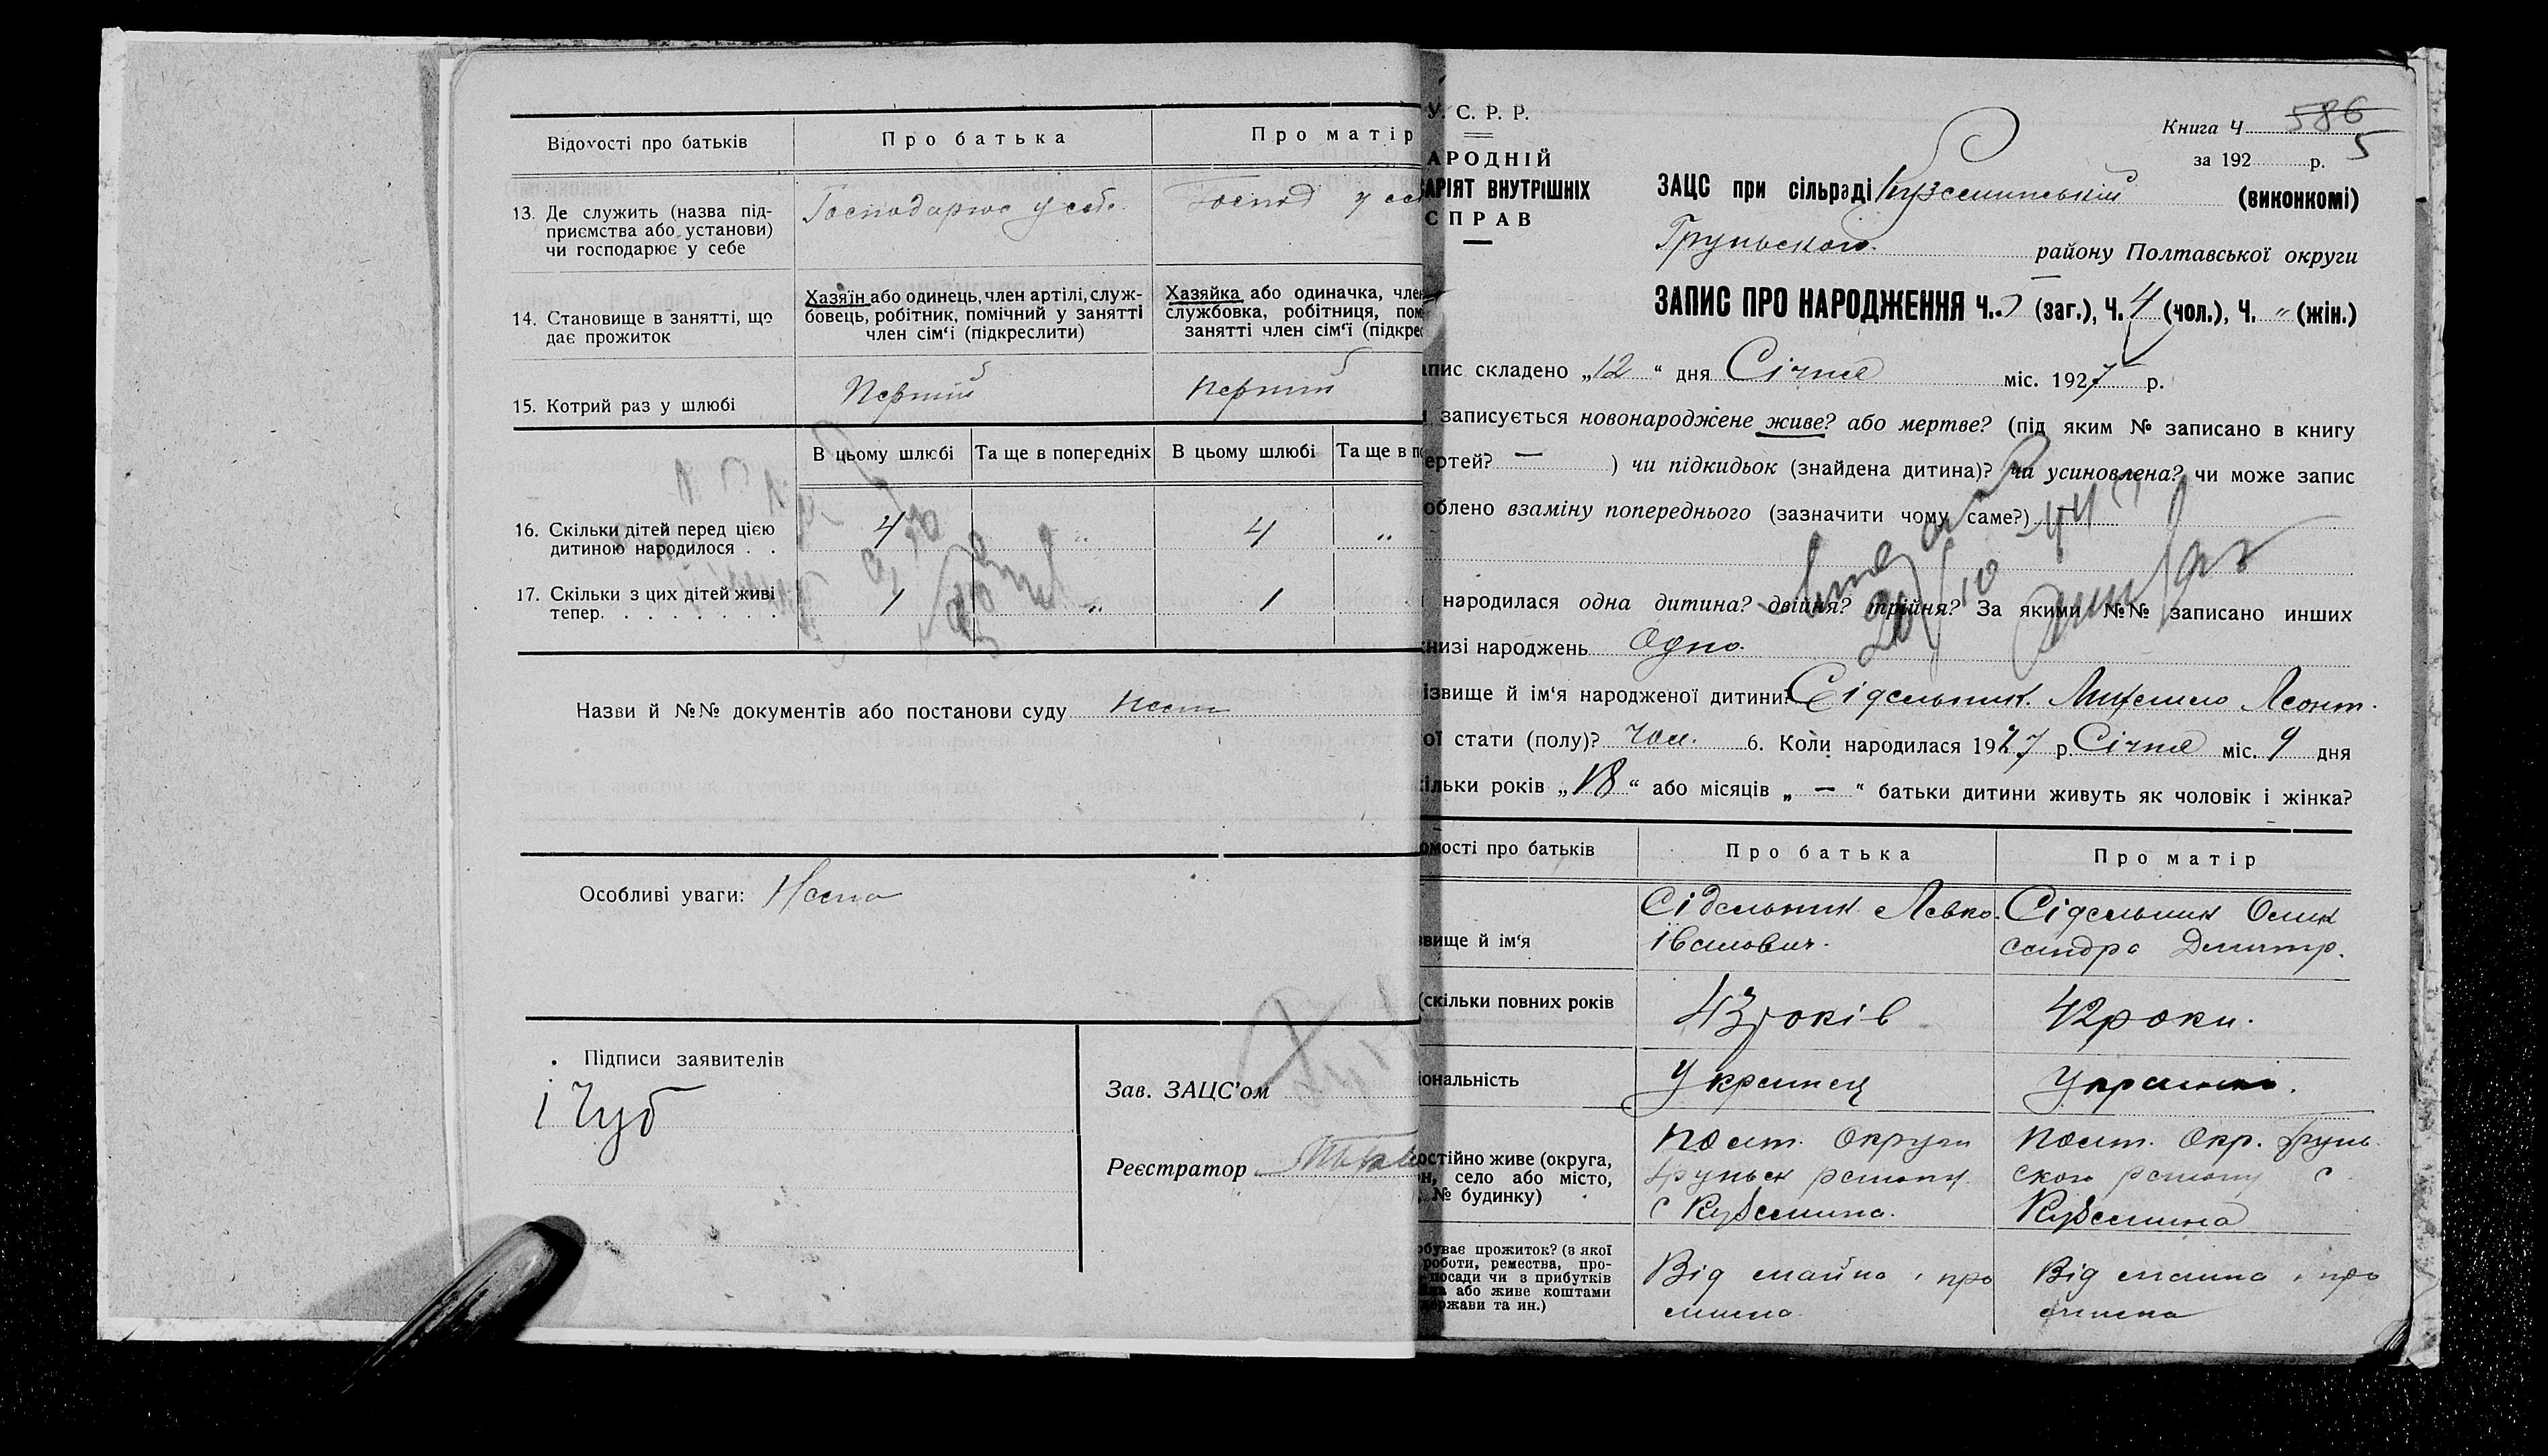 Відомості про батьків
Про батька
Про матір
13. Де служить (назва під-
приємства або установи)
чи господарює у себе
Господарює у себе
Господ у себ
14. Становище в занятті, що
дає прожиток
Хазяїн або одинець, член артілі, служ-
бовець, робітник, помічний у занятті
член сім'ї (підкреслити)
Хазяйка або одиначка, член
службовка, робітниця, пом
занятті член сім'ї (підкрес
15. Котрий раз у шлюбі
Перший
перший
В цьому шлюбі
Та ще в попередніх
В цьому шлюбі
Та ще в по
16. Скільки дітей перед цією
дитиною народилося . .
4 „ 4 „
17. Скільки з цих дітей живі
тепер. . . . . . . . .
1 „ 1
Назви й №№ документів або постанови суду
Особливі уваги:
Підписи заявителів
І Чуб
Зав. ЗАЦС'ом
Реєстратор
У. С. Р. Р.
АРОДНІЙ
АРІЯТ ВНУТРІШНІХ
СПРАВ
Книга Ч. 586
5
за 192 р.
ЗАЦС при сільраді Куземинський (виконкомі)
Груньского району Полтавської округи
ЗАПИС ПРО НАРОДЖЕННЯ Ч. 5 (заг.), Ч. 4 (чол.), Ч. „ (жін.)
апис складено „12“ дня Січня міс. 1927 р.
записується новонароджене живе? або мертве? (під яким № записано в книгу
ертей? — ) чи підкидьок (знайдена дитина)? чи усиновлена? чи може запис
облено взаміну попереднього (зазначити чому саме?)
народилася одна дитина? двійня? трійня? За якими №№ записано инших
книзі народжень Одно.
ізвище й ім'я народженої дитини? Сідельник Михайло Леонт.
ої стати (полу)? Чол. 6. Коли народилася 1927 р. Січня міс. 9 дня
кільки років „18“ або місяців „—“ батьки дитини живуть як чоловік і жінка?
омості про батьків
Про батька
Про матір
звище й ім'я
Сідельник Левко
Іванович.
Сідельник Олик
сандра Дмитр.
(скільки повних років
43 років
42 роки.
іональність
Українец
Українка.
остійно живе (округа,
н, село або місто,
№ будинку)
Полт. Округи
Груньск району
с Куземина.
Полт. Окр. Грунь
ского району с
Куземина
обуває прожиток? (з якої
роботи, ремества, про-
посади чи з прибутків
на або живе коштами
ержави та ин.)
Від майна
Від майна